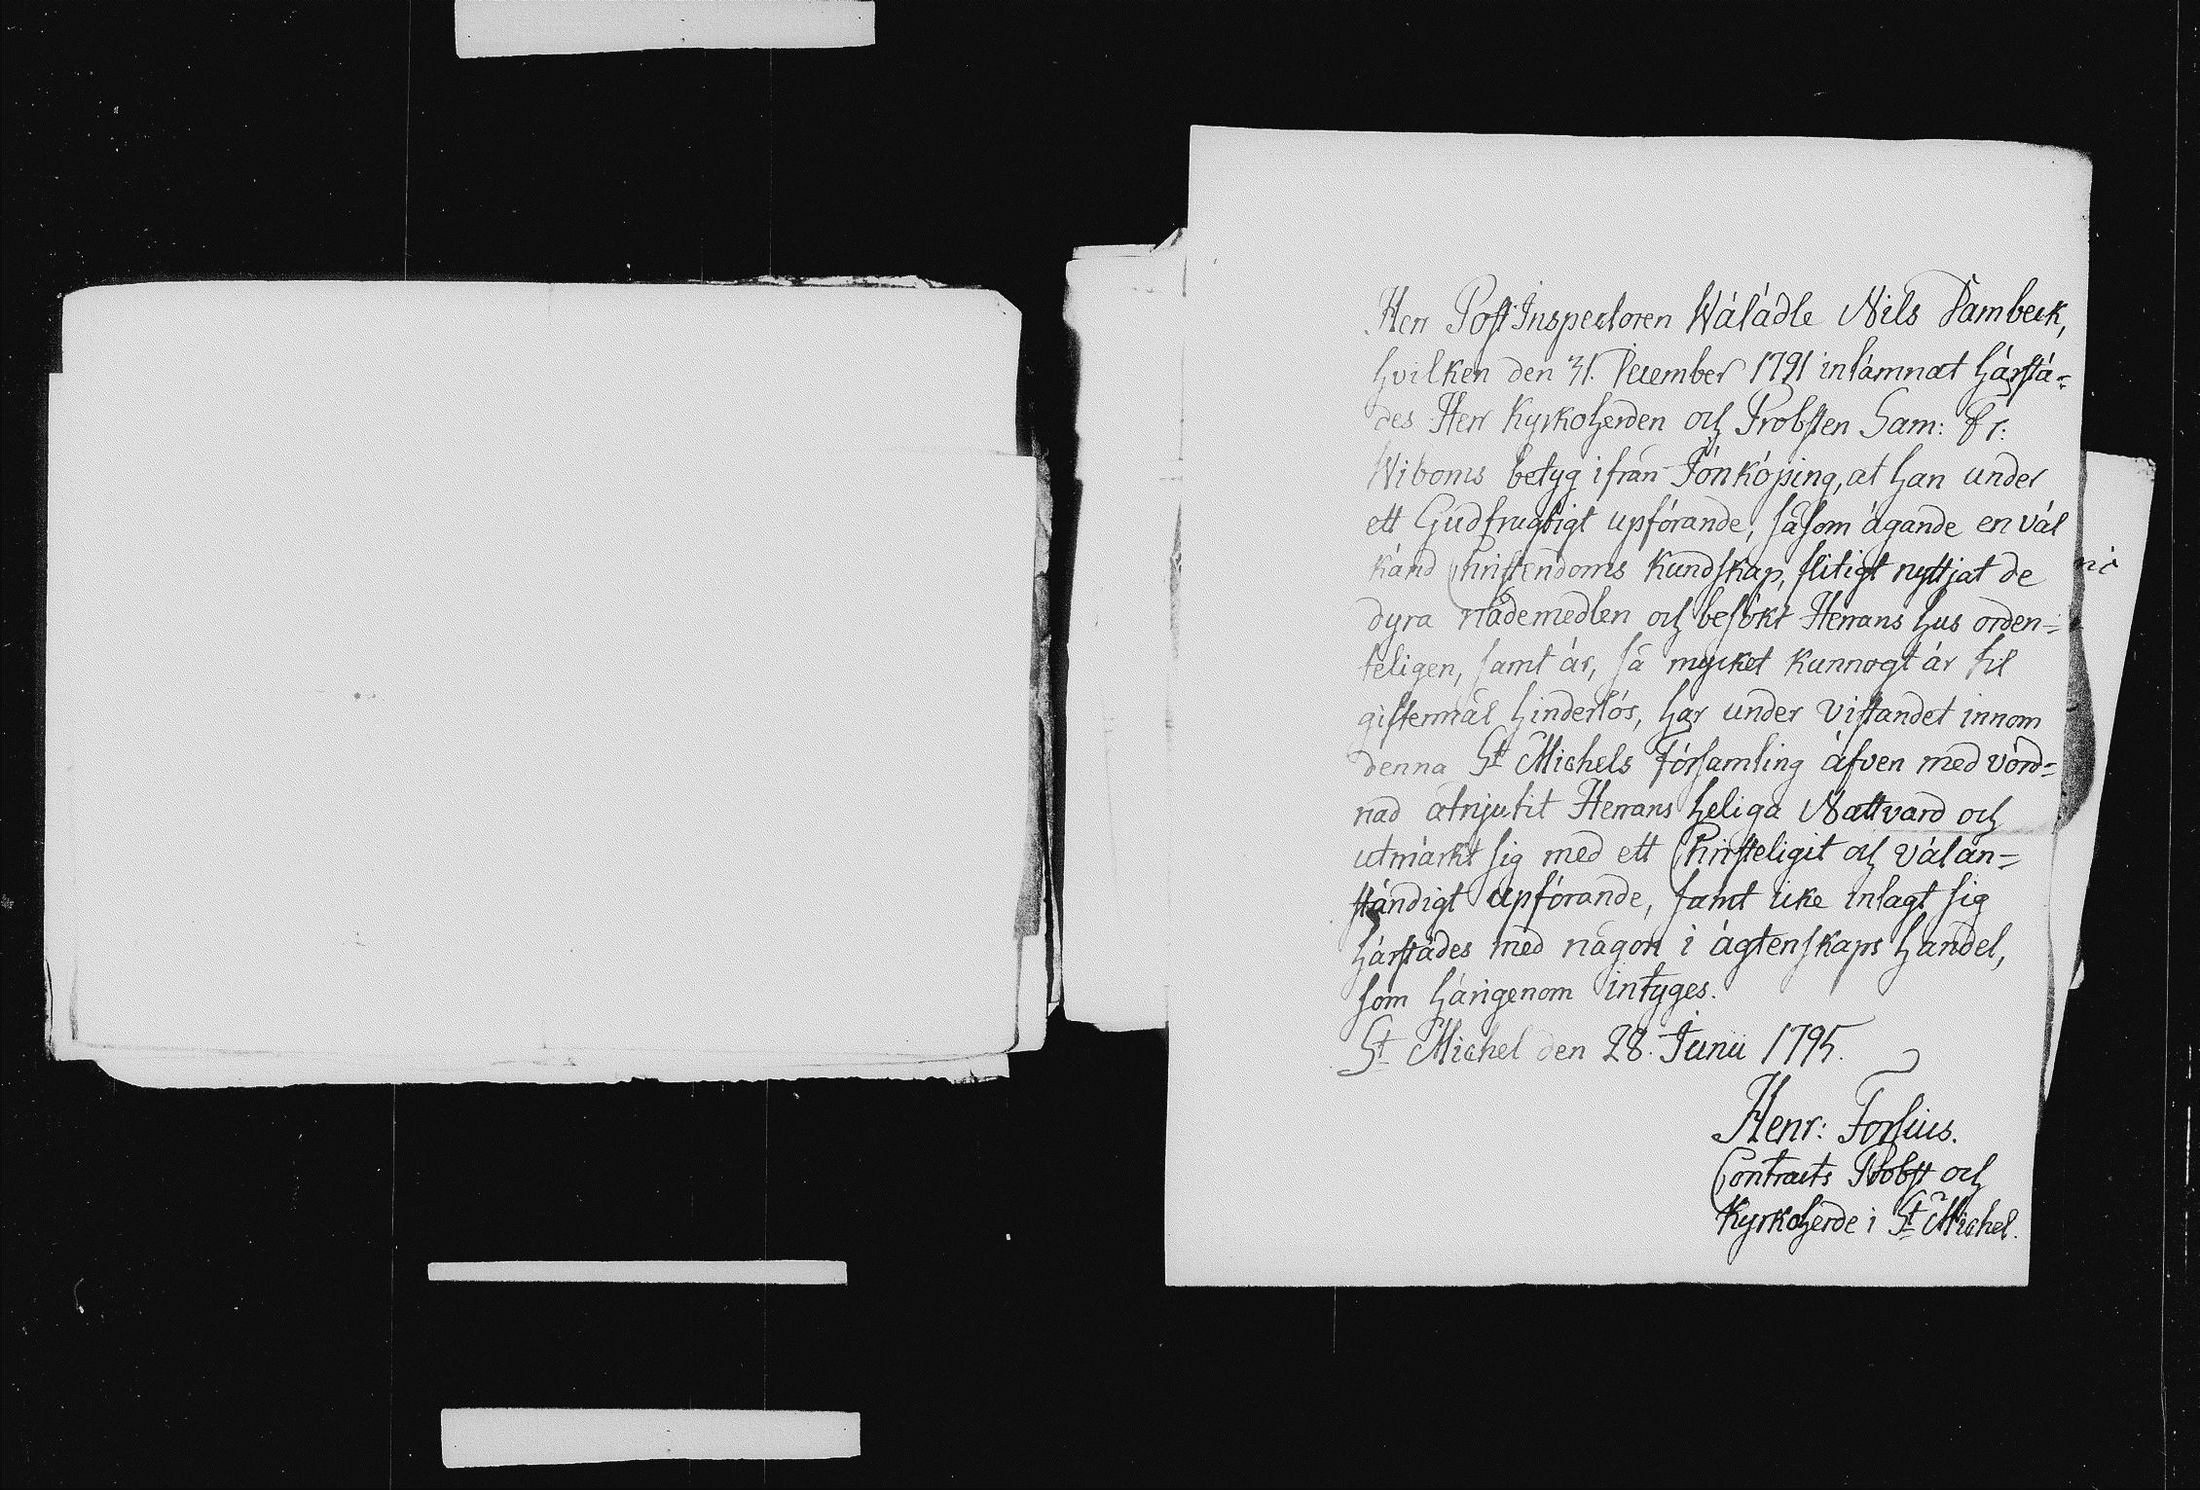 Herr Post Inspectoren Wälädle Nils Dambeck,
hvilken den 31. December 1791 inlämnat härstä=
des Herr Kyrkoherden och Probsten Sam: Fr:
Wiboms betyg ifrån Jönköping, at han under
ett Gudfrugtigt upförande, såsom ägande en väl
känd Christendoms kundskap, flitigt nyttjat de
dyra nådemedlen och besökt Herrans hus orden=
teligen, samt är, så mycket kunnogt är til
giftermål hinderlös, har under vistandet innom
denna St Michels Församling äfven med vörd=
nad åtnjutit Herrans heliga Nattvard och
utmärkt sig med ett Christeligit och välan=
ständigt upförande, samt icke inlagt sig
härstädes med någon i ägtenskaps handel,
som härigenom intyges.
St Michel den 28. Junii 1795.
Henr: Forsius.
Contracts Probst och
Kyrkoherde i St Michel.